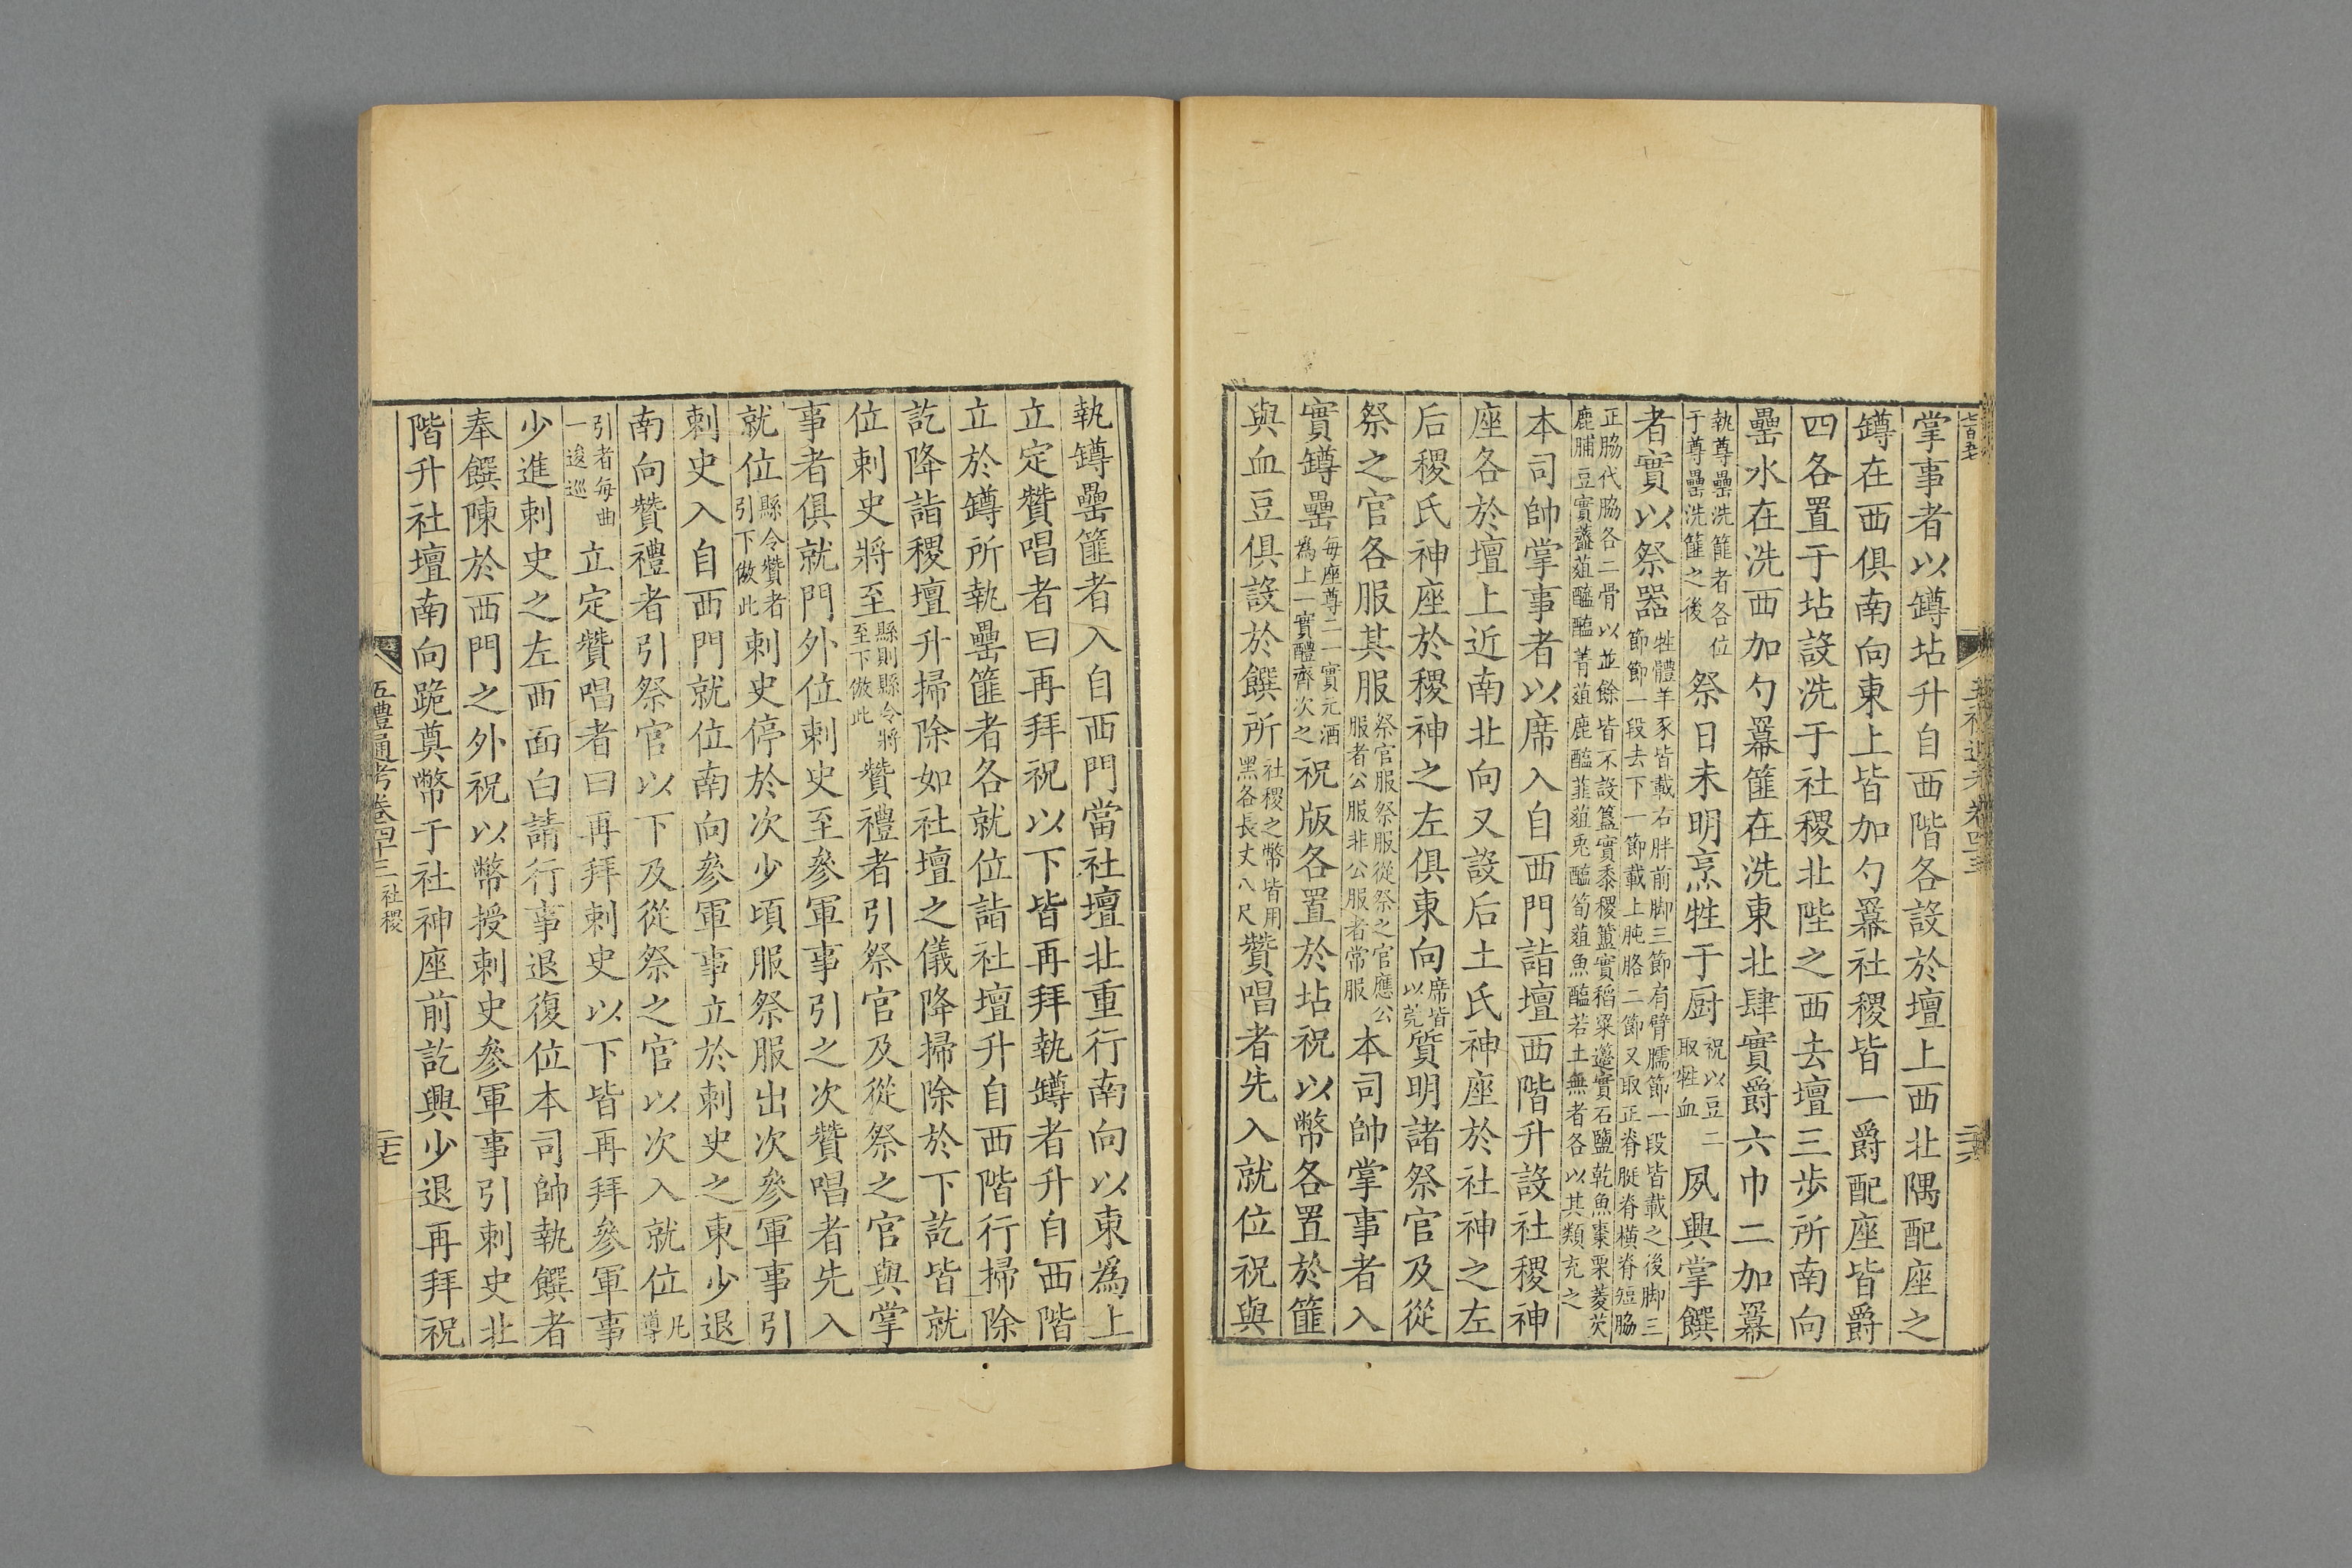 掌事者以罇坫升自西階各設於壇上西北隅配座之
罇在西俱南向東上皆加勺羃社稷皆一爵配座皆爵
四各置于坫設洗于社稷北陛之西去壇三步所南向
罍水在洗西加勺羃篚在洗東北肆實爵六巾二加羃
執尊罍洗篚者各位于尊罍洗篚之後祭日未明烹牲于厨祝以豆二取牲血夙興掌饌
者實以祭器牲體羊豕皆載右胖前脚三節肩臂臑節一段皆載之後脚三節節一段去下一節載上肫胳二節又取正脊脡脊橫脊短脇
正脇代脇各二骨以並餘皆不設簋實黍稷簠實稻粱籩實石鹽乾魚棗栗菱芡鹿脯豆實虀菹醓醢菁菹鹿醢韮菹兎醢筍菹魚醢若土無者各以其類充之
本司帥掌事者以席入自西門詣壇西階升設社稷神
座各於壇上近南北向又設后土氏神座於社神之左
后稷氏神座於稷神之左俱東向席皆以莞質明諸祭官及從
祭之官各服其服祭官服祭服從祭之官應公服者公服非公服者常服本司帥掌事者入
實罇罍每座尊二一實元酒為上一實醴齊次之祝版各置於坫祝以幣各置於篚
與血豆俱設於饌所社稷之幣皆用黑各長丈八尺贊唱者先入就位祝與
執罇罍篚者入自西門當社壇北重行南向以東為上
立定贊唱者曰再拜祝以下皆再拜執罇者升自西階
立於罇所執罍篚者各就位詣社壇升自西階行掃除
訖降詣稷壇升掃除如社壇之儀降掃除於下訖皆就
位刺史將至縣則縣令將至下倣此贊禮者引祭官及從祭之官與掌
事者俱就門外位刺史至參軍事引之次贊唱者先入
就位縣令贊者引下倣此刺史停於次少頃服祭服出次參軍事引
刺史入自西門就位南向參軍事立於刺史之東少退
南向贊禮者引祭官以下及從祭之官以次入就位凡導
引者每曲一逡巡立定贊唱者曰再拜刺史以下皆再拜參軍事
少進刺史之左西面白請行事退復位本司帥執饌者
奉饌陳於西門之外祝以幣授刺史參軍事引刺史北
階升社壇南向跪奠幣于社神座前訖興少退再拜祝
五禮通考卷四十三 社稷
二十七